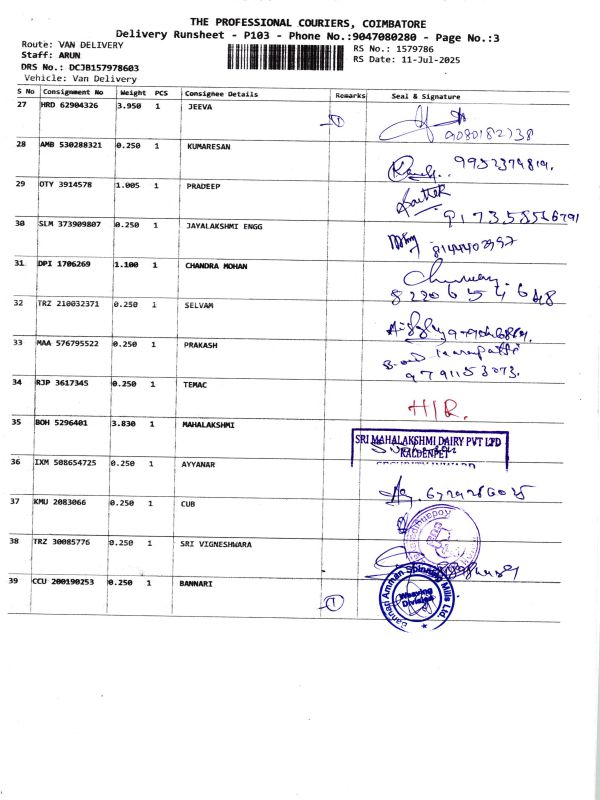 THE PROFESSIONAL COURIERS, COIMBATORE
Delivery Runsheet - P103 - Phone No.:9047080280 - Page No.:3
Route: VAN DELIVERY
Staff: ARUN
DRS No.: DCJB157978603
Vehicle: Van Delivery
RS No.: 1579786
RS Date: 11-Jul-2025
S No Consignment No Weight PCS Consignee Details Remarks Seal & Signature
27 HRD 62904326 3.950 1 JEEVA 1 9080182738
28 AMB 530288321 0.250 1 KUMARESAN
29 OTY 3914578 1.005 1 PRADEEP
30 SLM 373909807 0.250 1 JAYALAKSHMI ENGG
31 DPI 1706269 1.100 1 CHANDRA MOHAN
32 TRZ 210032371 0.250 1 SELVAM
33 MAA 576795522 0.250 1 PRAKASH
9791153073.
34 RJP 3617345 0.250 1 TEMAC H/R.
35 BOH 5296401 3.830 1 MAHALAKSHMI
SRI MAHALAKSHMI DAIRY PVT LTD
36 IXM 508654725 0.250 1 AYYANAR
37 KMU 2083066 0.250 1 CUB
38 TRZ 30085776 0.250 1 SRI VIGNESHWARA
39 CCU 200190253 0.250 1 BANNARI 1
Bannari Amman Spinning Mills Ltd.
Weaving Division